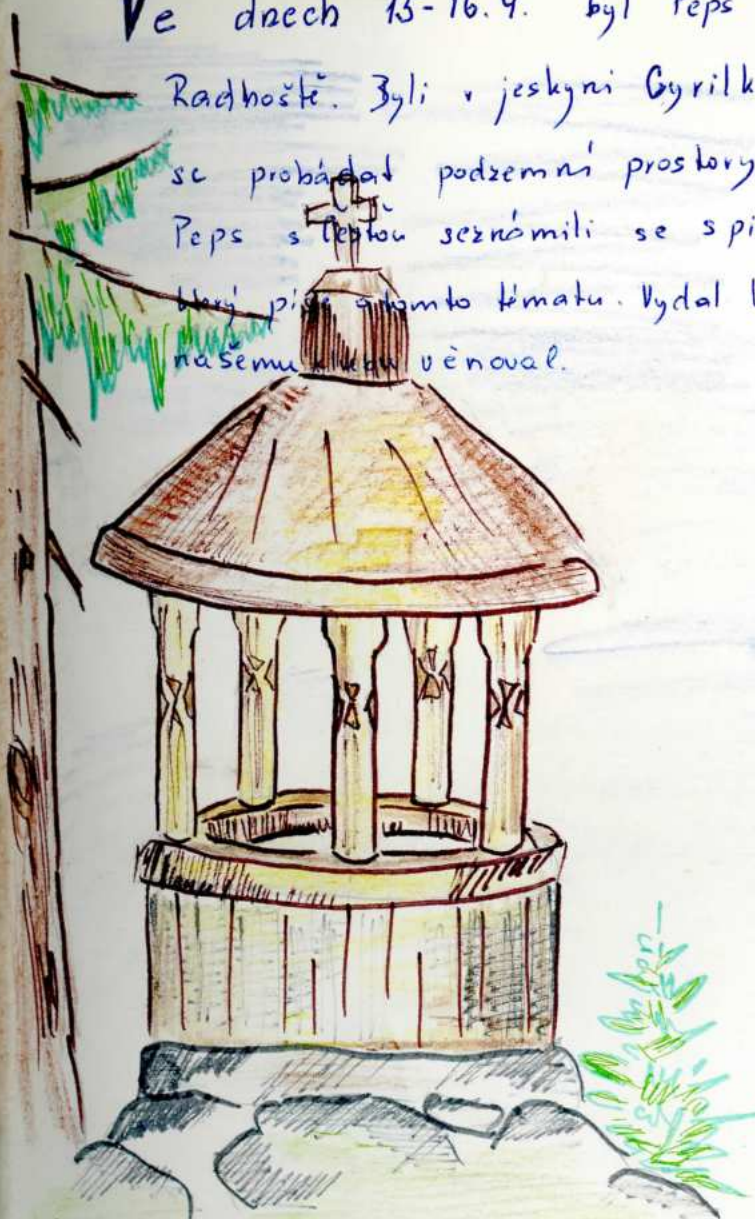 Ve dnech 13-16.9. byl Peps
Radhoště. Byli v jeskyni Cyrilk
se probádat podzemní prostory
Peps s seznámili se spi
který píše o tomto tématu. Vydal
našemu klubu věnoval.